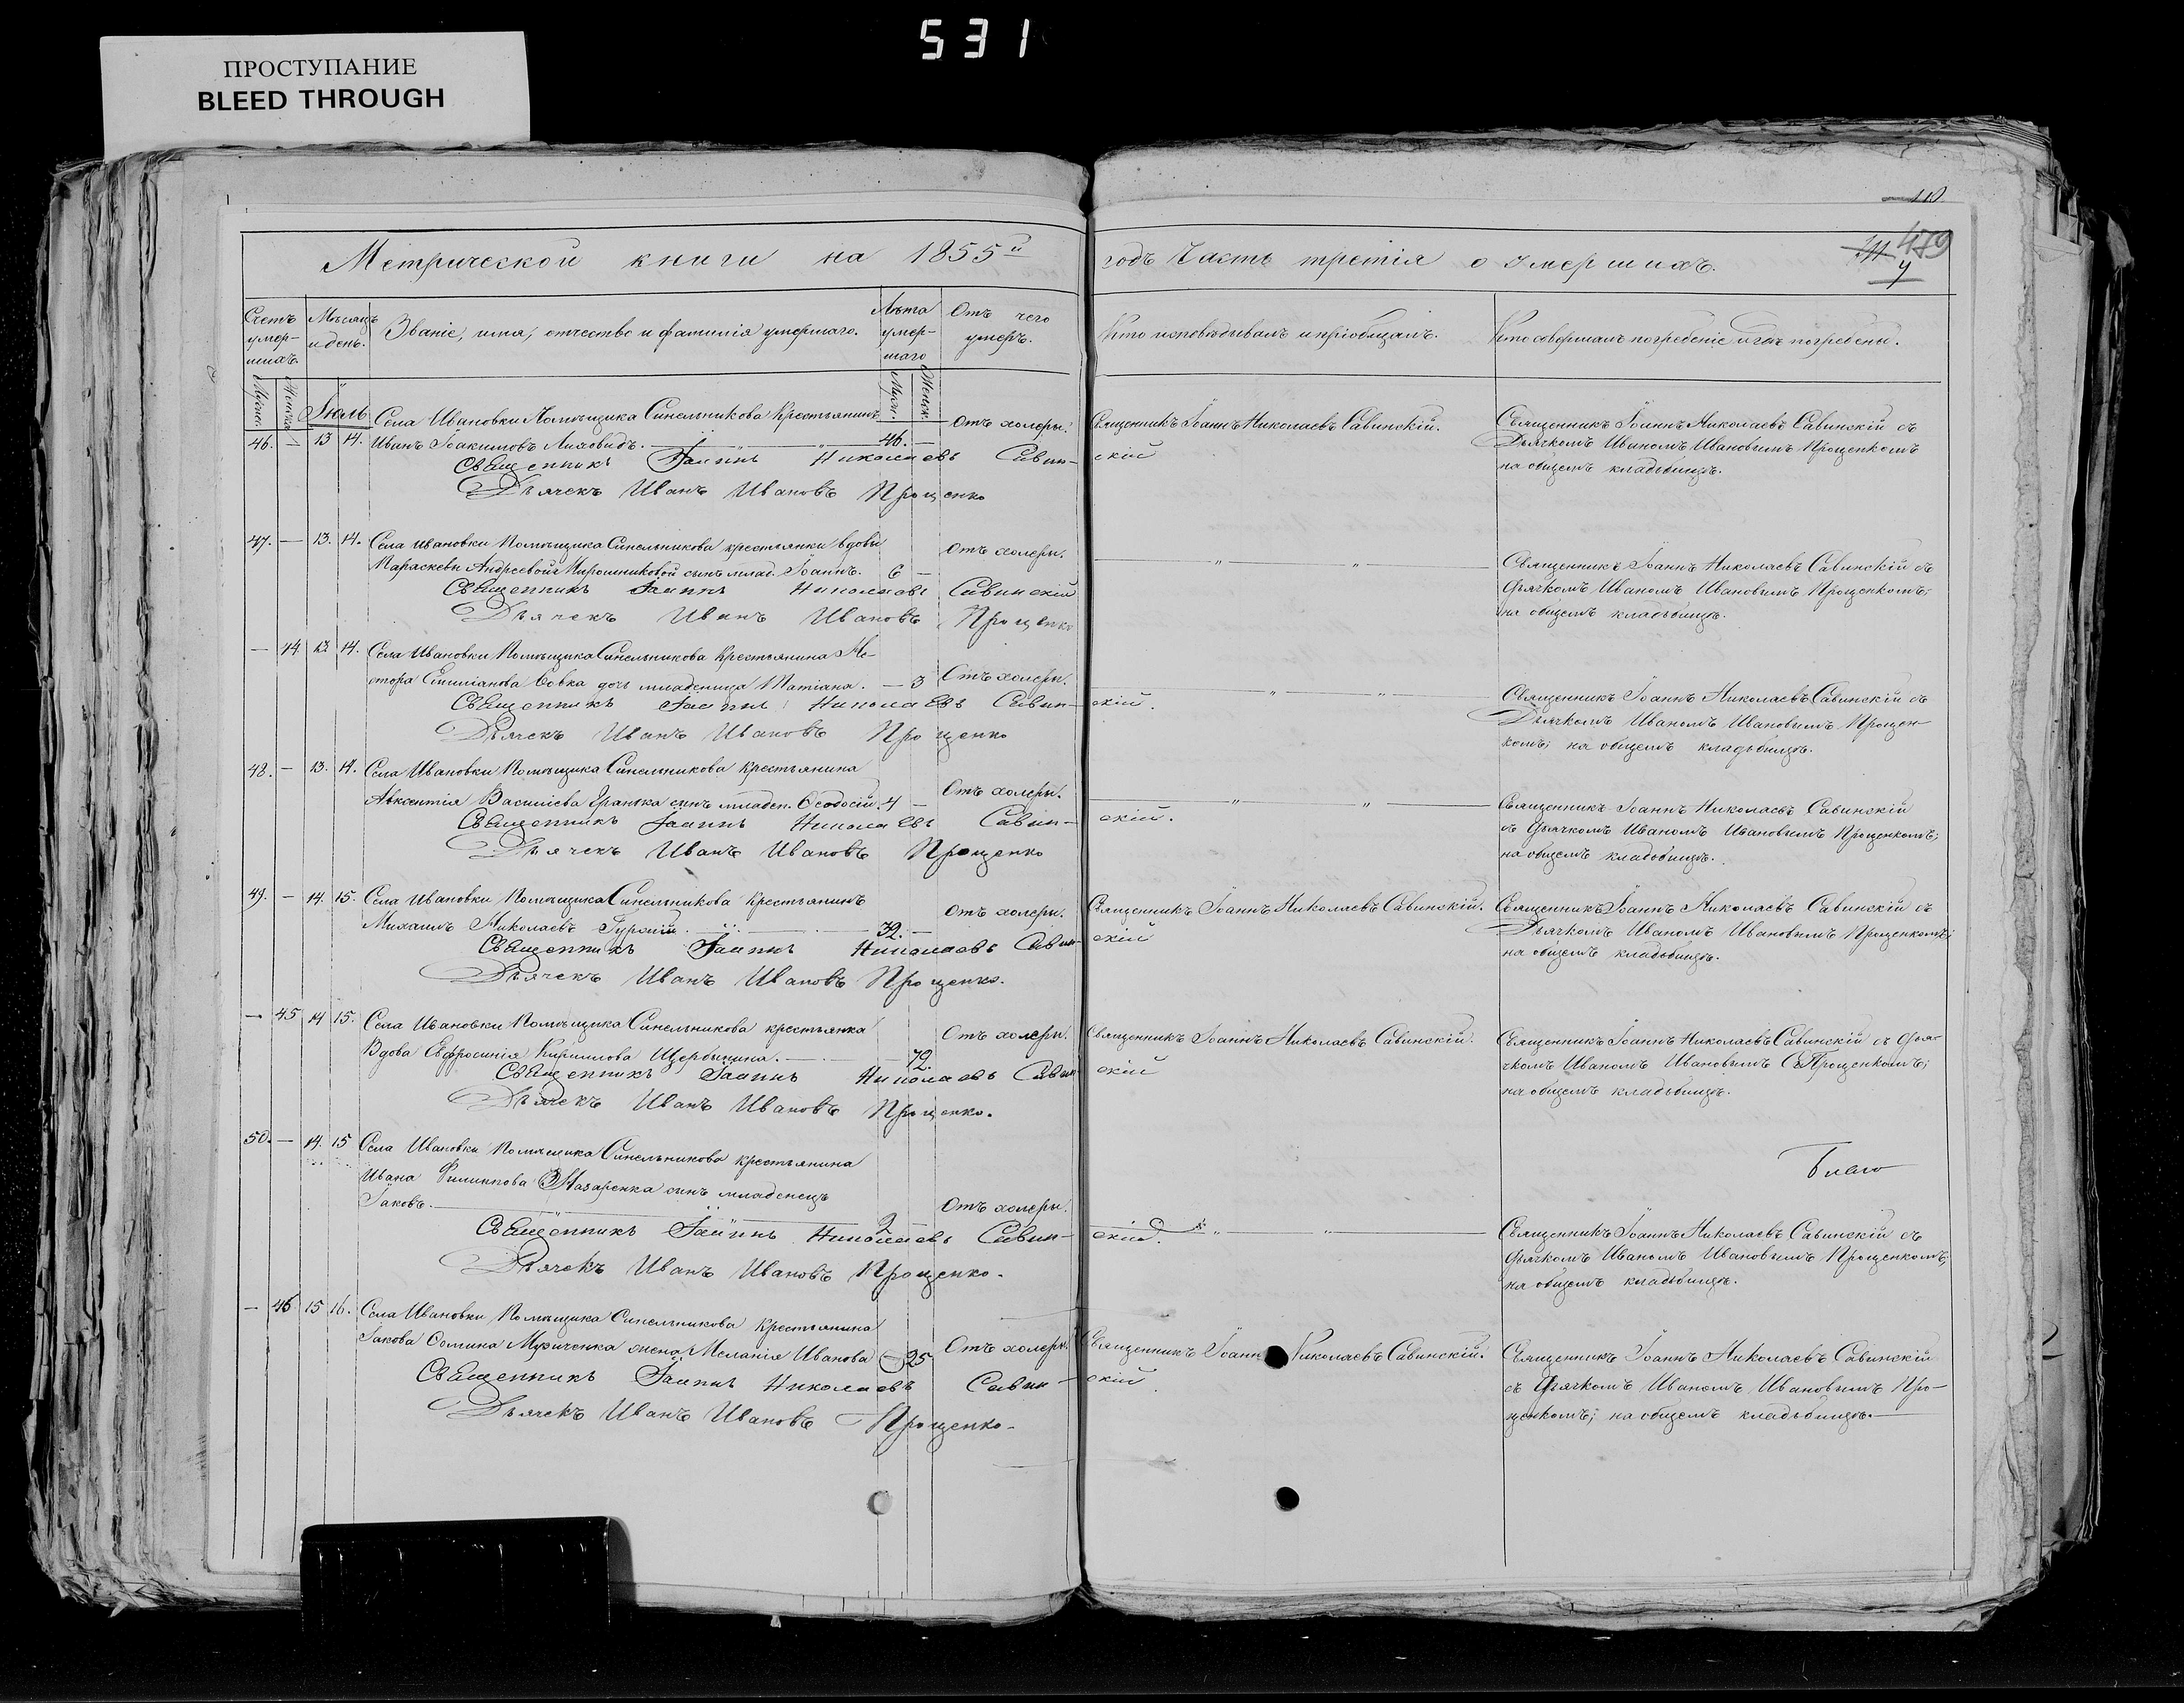 531
ПРОСТУПАНИЕ
BLEED THROUGH
110
479
Метрической книги на 1855й годъ Часть третія о умершихъ.
Счетъ умер-шихъ.
Мѣсяцъ и день.
Званіе, имя, отчество и фамилія умершаго.
Лѣта умер-шаго
Отъ чего умеръ.
Кто исповѣдывалъ и пріобщалъ.
Кто совершалъ погребеніе и гдѣ погребены.
Мужск.
Женск.
Мужс.
Женск.
Іюль
Села Ивановки Помѣщика Синельникова Крестьянинъ
46. — 13 14. Иванъ Іоакимовъ Лиховидъ. 46. —
Отъ холеры.
Священникъ Іоаннъ Николаевъ Савинскій.
Священникъ Іоаннъ Николаевъ Савинскій съ
Дьячкомъ Иваномъ Ивановымъ Прощенкомъ
на общемъ кладбищѣ.
Священникъ Іоаннъ Николаевъ Савин-скій
Дьячекъ Иванъ Ивановъ Прощенко
47. — 13. 14. Села Ивановки Помѣщика Синельникова крестьянки вдовы
Параскевы Андреевой Мирошниковой сынъ млад. Іоаннъ. 6 —
Отъ холеры.
Священникъ Іоаннъ Николаевъ Савинскій съ
Дьячкомъ Иваномъ Ивановымъ Прощенкомъ;
на общемъ кладбищѣ.
Священникъ Іоаннъ Николаевъ Савинскій
Дьячекъ Иванъ Ивановъ Прощенко
— 44 13 14. Села Ивановки Помѣщика Синельникова Крестьянина Не-
стора Емиліанова Вовка дочь младеница Татіана. — 3
Отъ холеры.
Священникъ Іоаннъ Николаевъ Савинскій съ
Дьячкомъ Иваномъ Ивановымъ Прощен-
комъ; на общемъ кладбищѣ.
Священникъ Іоаннъ Николаевъ Савин-скій.
Дьячекъ Иванъ Ивановъ Прощенко
48. — 13. 14. Села Ивановки Помѣщика Синельникова Крестьянина
Авксентія Василіева сынъ младен. Ѳеодосій. 4 —
Отъ холеры.
Священникъ Іоаннъ Николаевъ Савинскій
съ Дьячкомъ Иваномъ Ивановымъ Прощенкомъ;
на общемъ кладбищѣ.
Священникъ Іоаннъ Николаевъ Савин-скій.
Дьячекъ Иванъ Ивановъ Прощенко
49. — 14. 15. Села Ивановки Помѣщика Синельникова Крестьянинъ
Михаилъ Николаевъ 32. —
Отъ холеры.
Священникъ Іоаннъ Николаевъ Савинскій.
Священникъ Іоаннъ Николаевъ Савинскій съ
Дьячкомъ Иваномъ Ивановымъ Прощенкомъ;
на общемъ кладбищѣ.
Священникъ Іоаннъ Николаевъ Савин-скій
Дьячекъ Иванъ Ивановъ Прощенко.
— 45 14 15. Села Ивановки Помѣщика Синельникова крестьянка
Вдова Евфросинія Кирилова Щербинина. 72.
Отъ холеры.
Священникъ Іоаннъ Николаевъ Савинскій.
Священникъ Іоаннъ Николаевъ Савинскій съ Дья-
чкомъ Иваномъ Ивановымъ Прощенкомъ;
на общемъ кладбищѣ.
Священникъ Іоаннъ Николаевъ Савин-скій
Дьячекъ Иванъ Ивановъ Прощенко.
50. — 14. 15 Села Ивановки Помѣщика Синельникова крестьянина
Ивана Филиппова Назаренка сынъ младенецъ
Іаковъ. 2 —
Отъ холеры.
Священникъ Іоаннъ Николаевъ Савинскій съ
Дьячкомъ Иваномъ Ивановымъ Прощенкомъ;
на общемъ кладбищѣ.
Священникъ Іоаннъ Николаевъ Савин-скій.
Дьячекъ Иванъ Ивановъ Прощенко.
— 46 15 16. Села Ивановки Помѣщика Синельникова Крестьянина
Іакова жена Меланія Иванова — 25
Отъ холеры.
Священникъ Іоаннъ Николаевъ Савинскій.
Священникъ Іоаннъ Николаевъ Савинскій
съ Дьячкомъ Иваномъ Ивановымъ Про-
щенкомъ; на общемъ кладбищѣ.
Священникъ Іоаннъ Николаевъ Савин-скій
Дьячекъ Иванъ Ивановъ Прощенко.